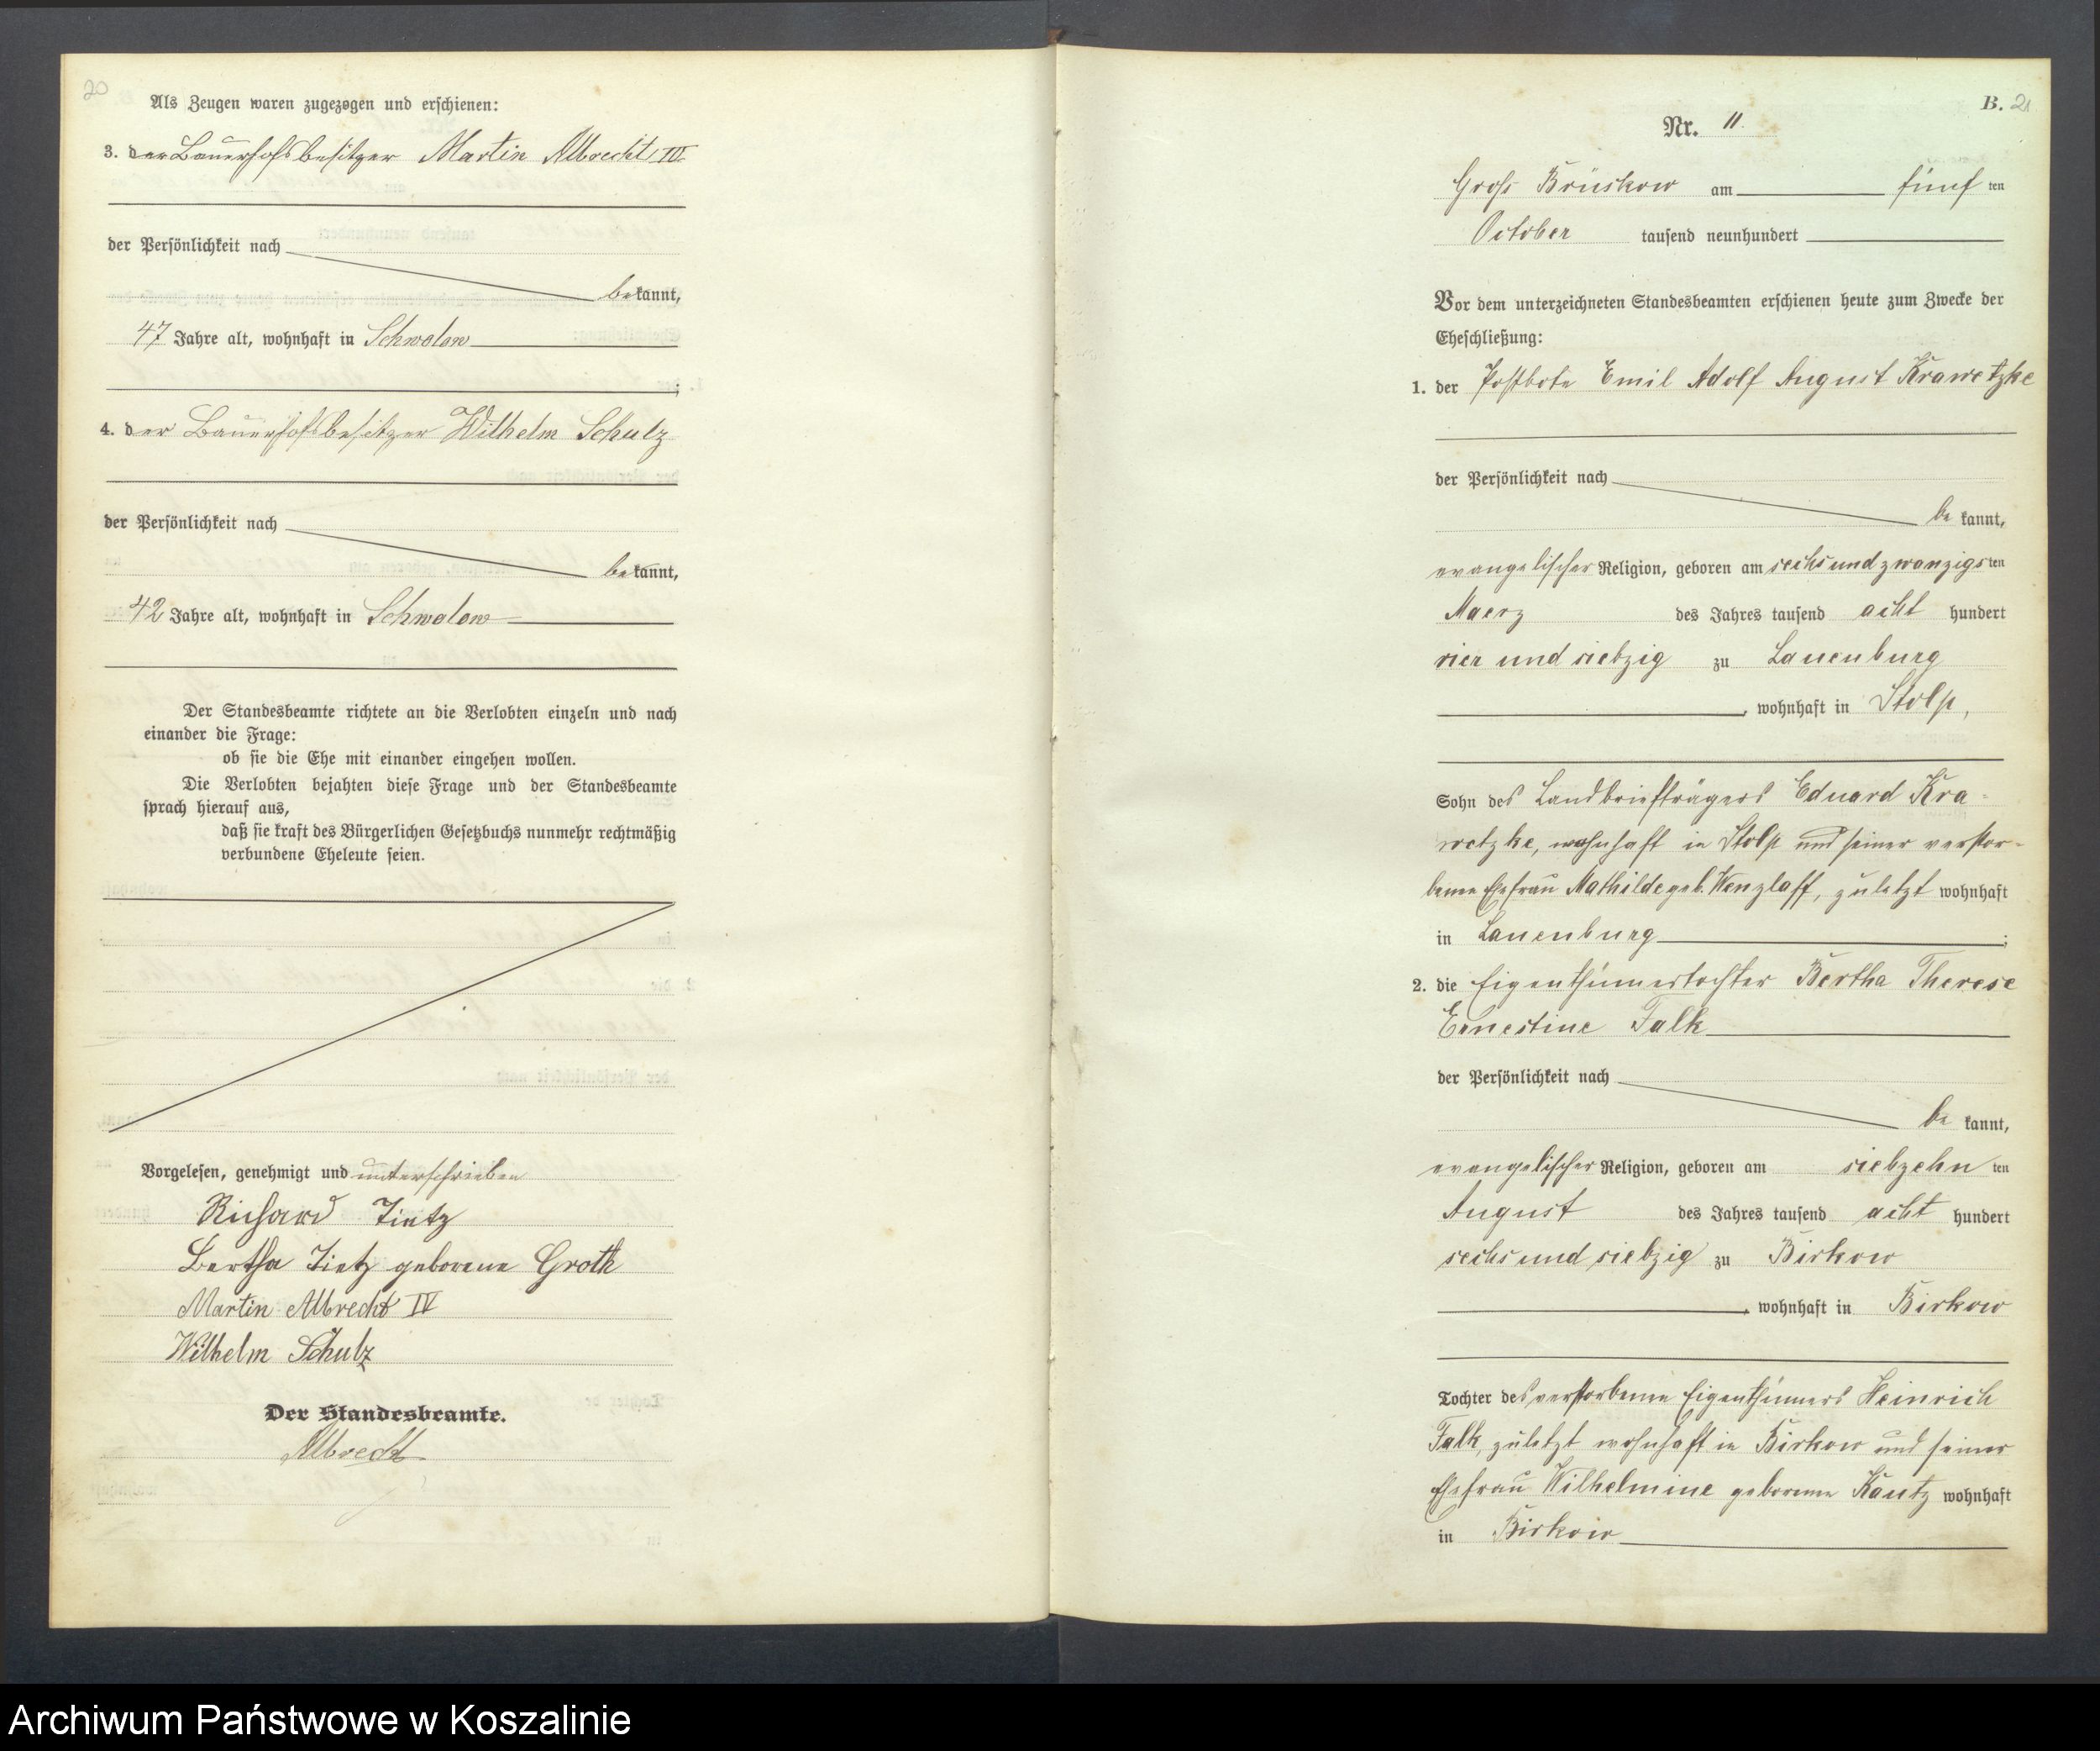 20
Als Zeugen waren zugezogen und erschienen:
3. der Bauerhofsbesitzer Martin Albrecht IV
der Persönlichkeit nach
bekannt,
47 Jahre alt, wohnhaft in Schwolow
;
4. der Bauerhofsbesitzer Wilhelm Schulz
der Persönlichkeit nach
bekannt,
42 Jahre alt, wohnhaft in Schwolow
Der Standesbeamte richtete an die Verlobten einzeln und nach
einander die Frage:
ob sie die Ehe mit einander eingehen wollen.
Die Verlobten bejahten diese Frage und der Standesbeamte
sprach hierauf aus,
daß sie kraft des Bürgerlichen Gesetzbuchs nunmehr rechtmäßig
verbundene Eheleute seien.
Vorgelesen, genehmigt und unterschrieben
Richard Tietz
Bertha Tietz geborene Groth
Martin Albrecht IV
Wilhelm Schulz
Der Standesbeamte.
Albrecht
B. 21
Nr. 11.
Groß Brüskow am fünf ten
October tausend neunhundert
Vor dem unterzeichneten Standesbeamten erschienen heute zum Zwecke der
Eheschließung:
1. der Postbote Emil Adolf August Krawetzke
der Persönlichkeit nach
be kannt,
evangelischer Religion, geboren am sechsundzwanzigsten
Maerz des Jahres tausend acht hundert
vier und siebzig zu Lauenburg
, wohnhaft in Stolp,
Sohn des Landbriefträgers Eduard Kra-
wetzke, wohnhaft in Stolp und seiner verstor-
benen Ehefrau Mathilde geb. Wenzlaff, zuletzt wohnhaft
in Lauenburg ;
2. die Eigenthümertochter Bertha Therese
Ernestine Falk
der Persönlichkeit nach
be kannt,
evangelischer Religion, geboren am siebzehn ten
August des Jahres tausend acht hundert
sechs und siebzig zu Birkow
, wohnhaft in Birkow
Tochter des verstorbenen Eigenthümers Heinrich
Falk, zuletzt wohnhaft in Birkow und seiner
Ehefrau Wilhelmine geborenen Kautz wohnhaft
in Birkow
Archiwum Państwowe w Koszalinie